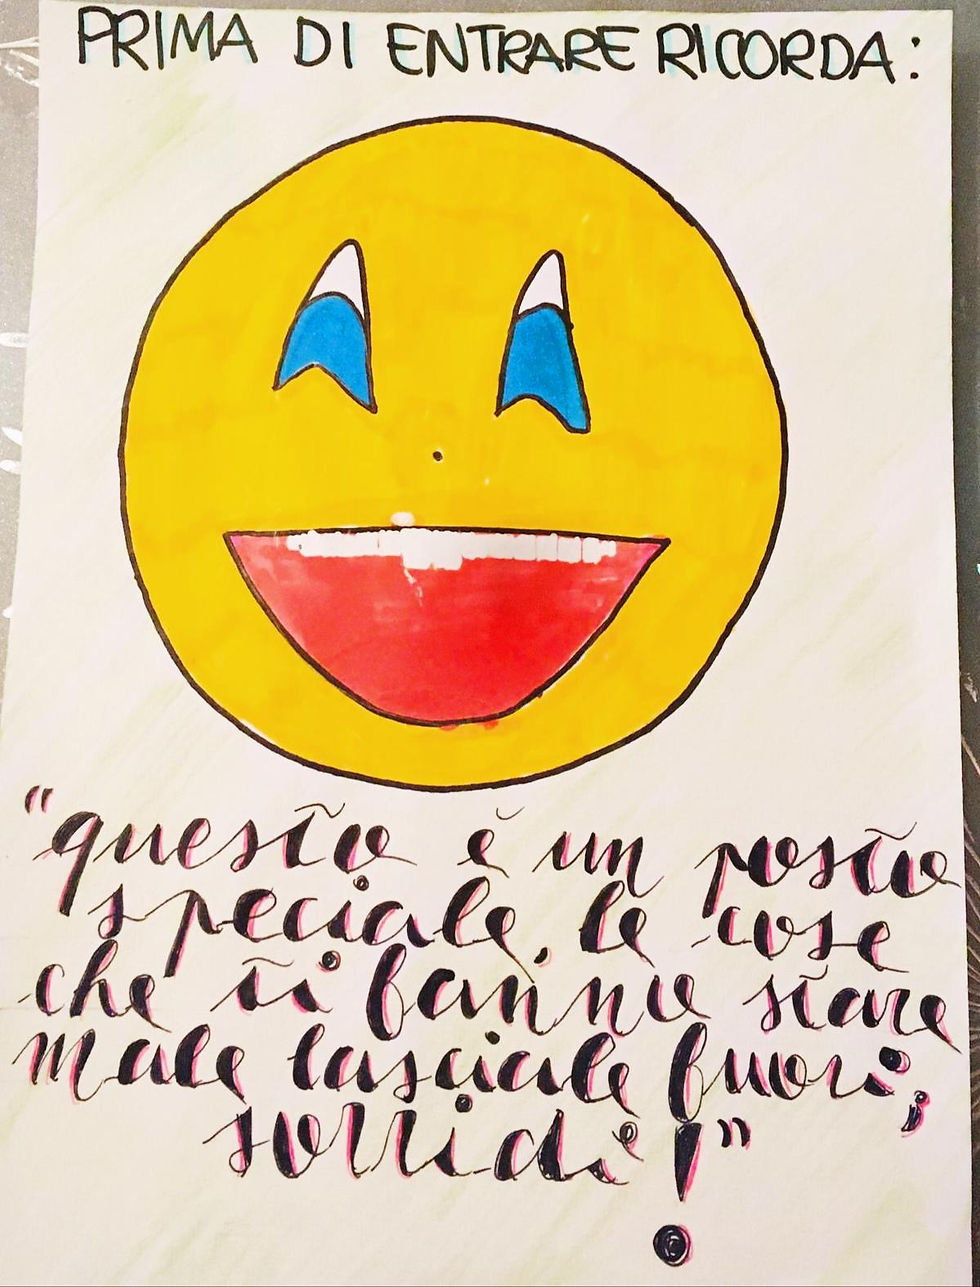 PRIMA DI ENTRARE RICORDA:
"questo è un posto
speciale, le cose
che ti fanno stare
male lasciale fuori,
sorridi!"